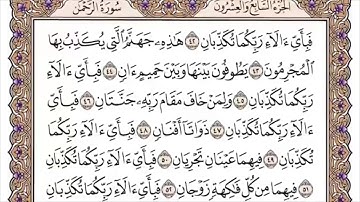 الجزء السابع والعشرون سورة الرحمن
فَبِأَيِّ ءَالَآءِ رَبِّكُمَا تُكَذِّبَانِ ٤٢ هَٰذِهِۦ جَهَنَّمُ ٱلَّتِي يُكَذِّبُ بِهَا
ٱلْمُجْرِمُونَ ٤٣ يَطُوفُونَ بَيْنَهَا وَبَيْنَ حَمِيمٍ ءَانٍ ٤٤ فَبِأَيِّ ءَالَآءِ
رَبِّكُمَا تُكَذِّبَانِ ٤٥ وَلِمَنْ خَافَ مَقَامَ رَبِّهِۦ جَنَّتَانِ ٤٦ فَبِأَيِّ
ءَالَآءِ رَبِّكُمَا تُكَذِّبَانِ ٤٧ ذَوَاتَآ أَفْنَانٍ ٤٨ فَبِأَيِّ ءَالَآءِ رَبِّكُمَا
تُكَذِّبَانِ ٤٩ فِيهِمَا عَيْنَانِ تَجْرِيَانِ ٥٠ فَبِأَيِّ ءَالَآءِ رَبِّكُمَا تُكَذِّبَانِ
٥١ فِيهِمَا مِن كُلِّ فَٰكِهَةٍ زَوْجَانِ ٥٢ فَبِأَيِّ ءَالَآءِ رَبِّكُمَا تُكَذِّبَانِ